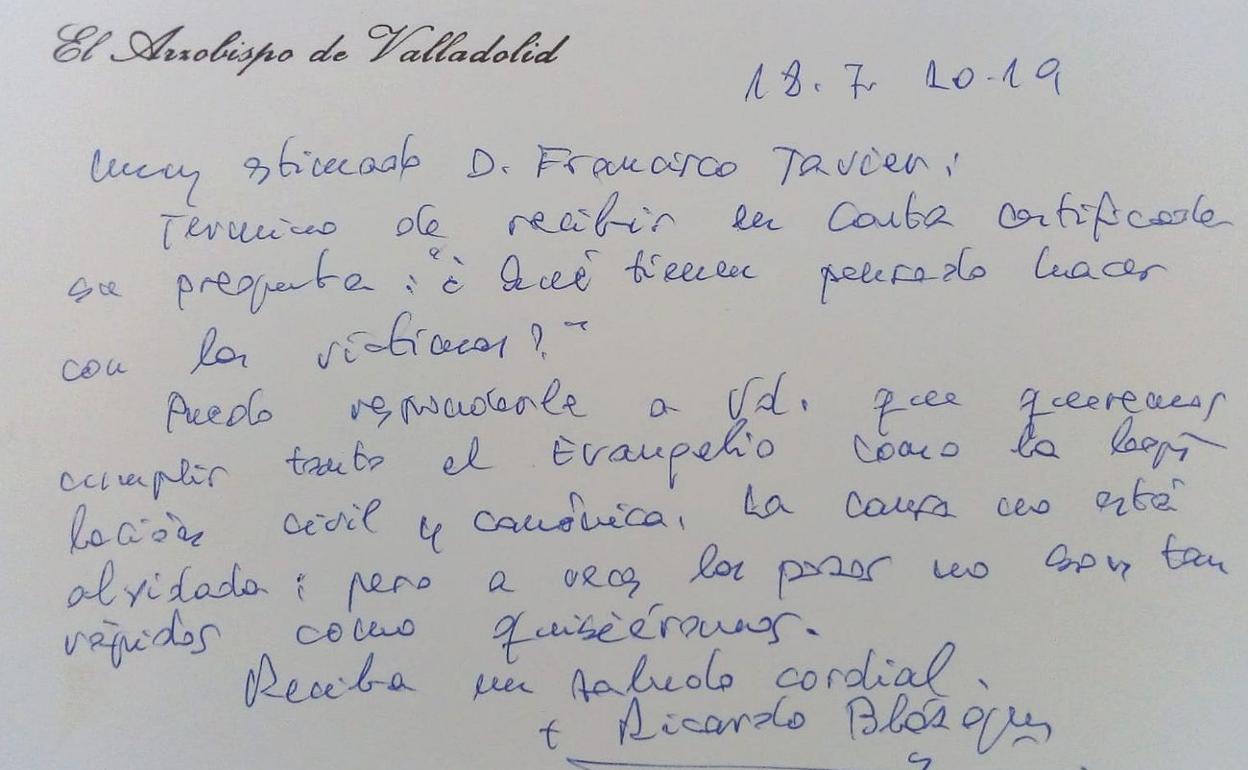 El Arzobispo de Valladolid
18. 7. 2019
Muy estimado D. Francisco Javier:
Termino de recibir en Carta certificada
su pregunta: "¿Qué tienen pensado hacer
con las víctimas?"
Puedo responderle a Vd. que queremos
cumplir tanto el Evangelio como la legis-
lación civil y canónica. La causa no está
olvidada; pero a veces los pasos no son tan
rápidos como quisiéramos.
Reciba un saludo cordial.
+ Ricardo Blázquez